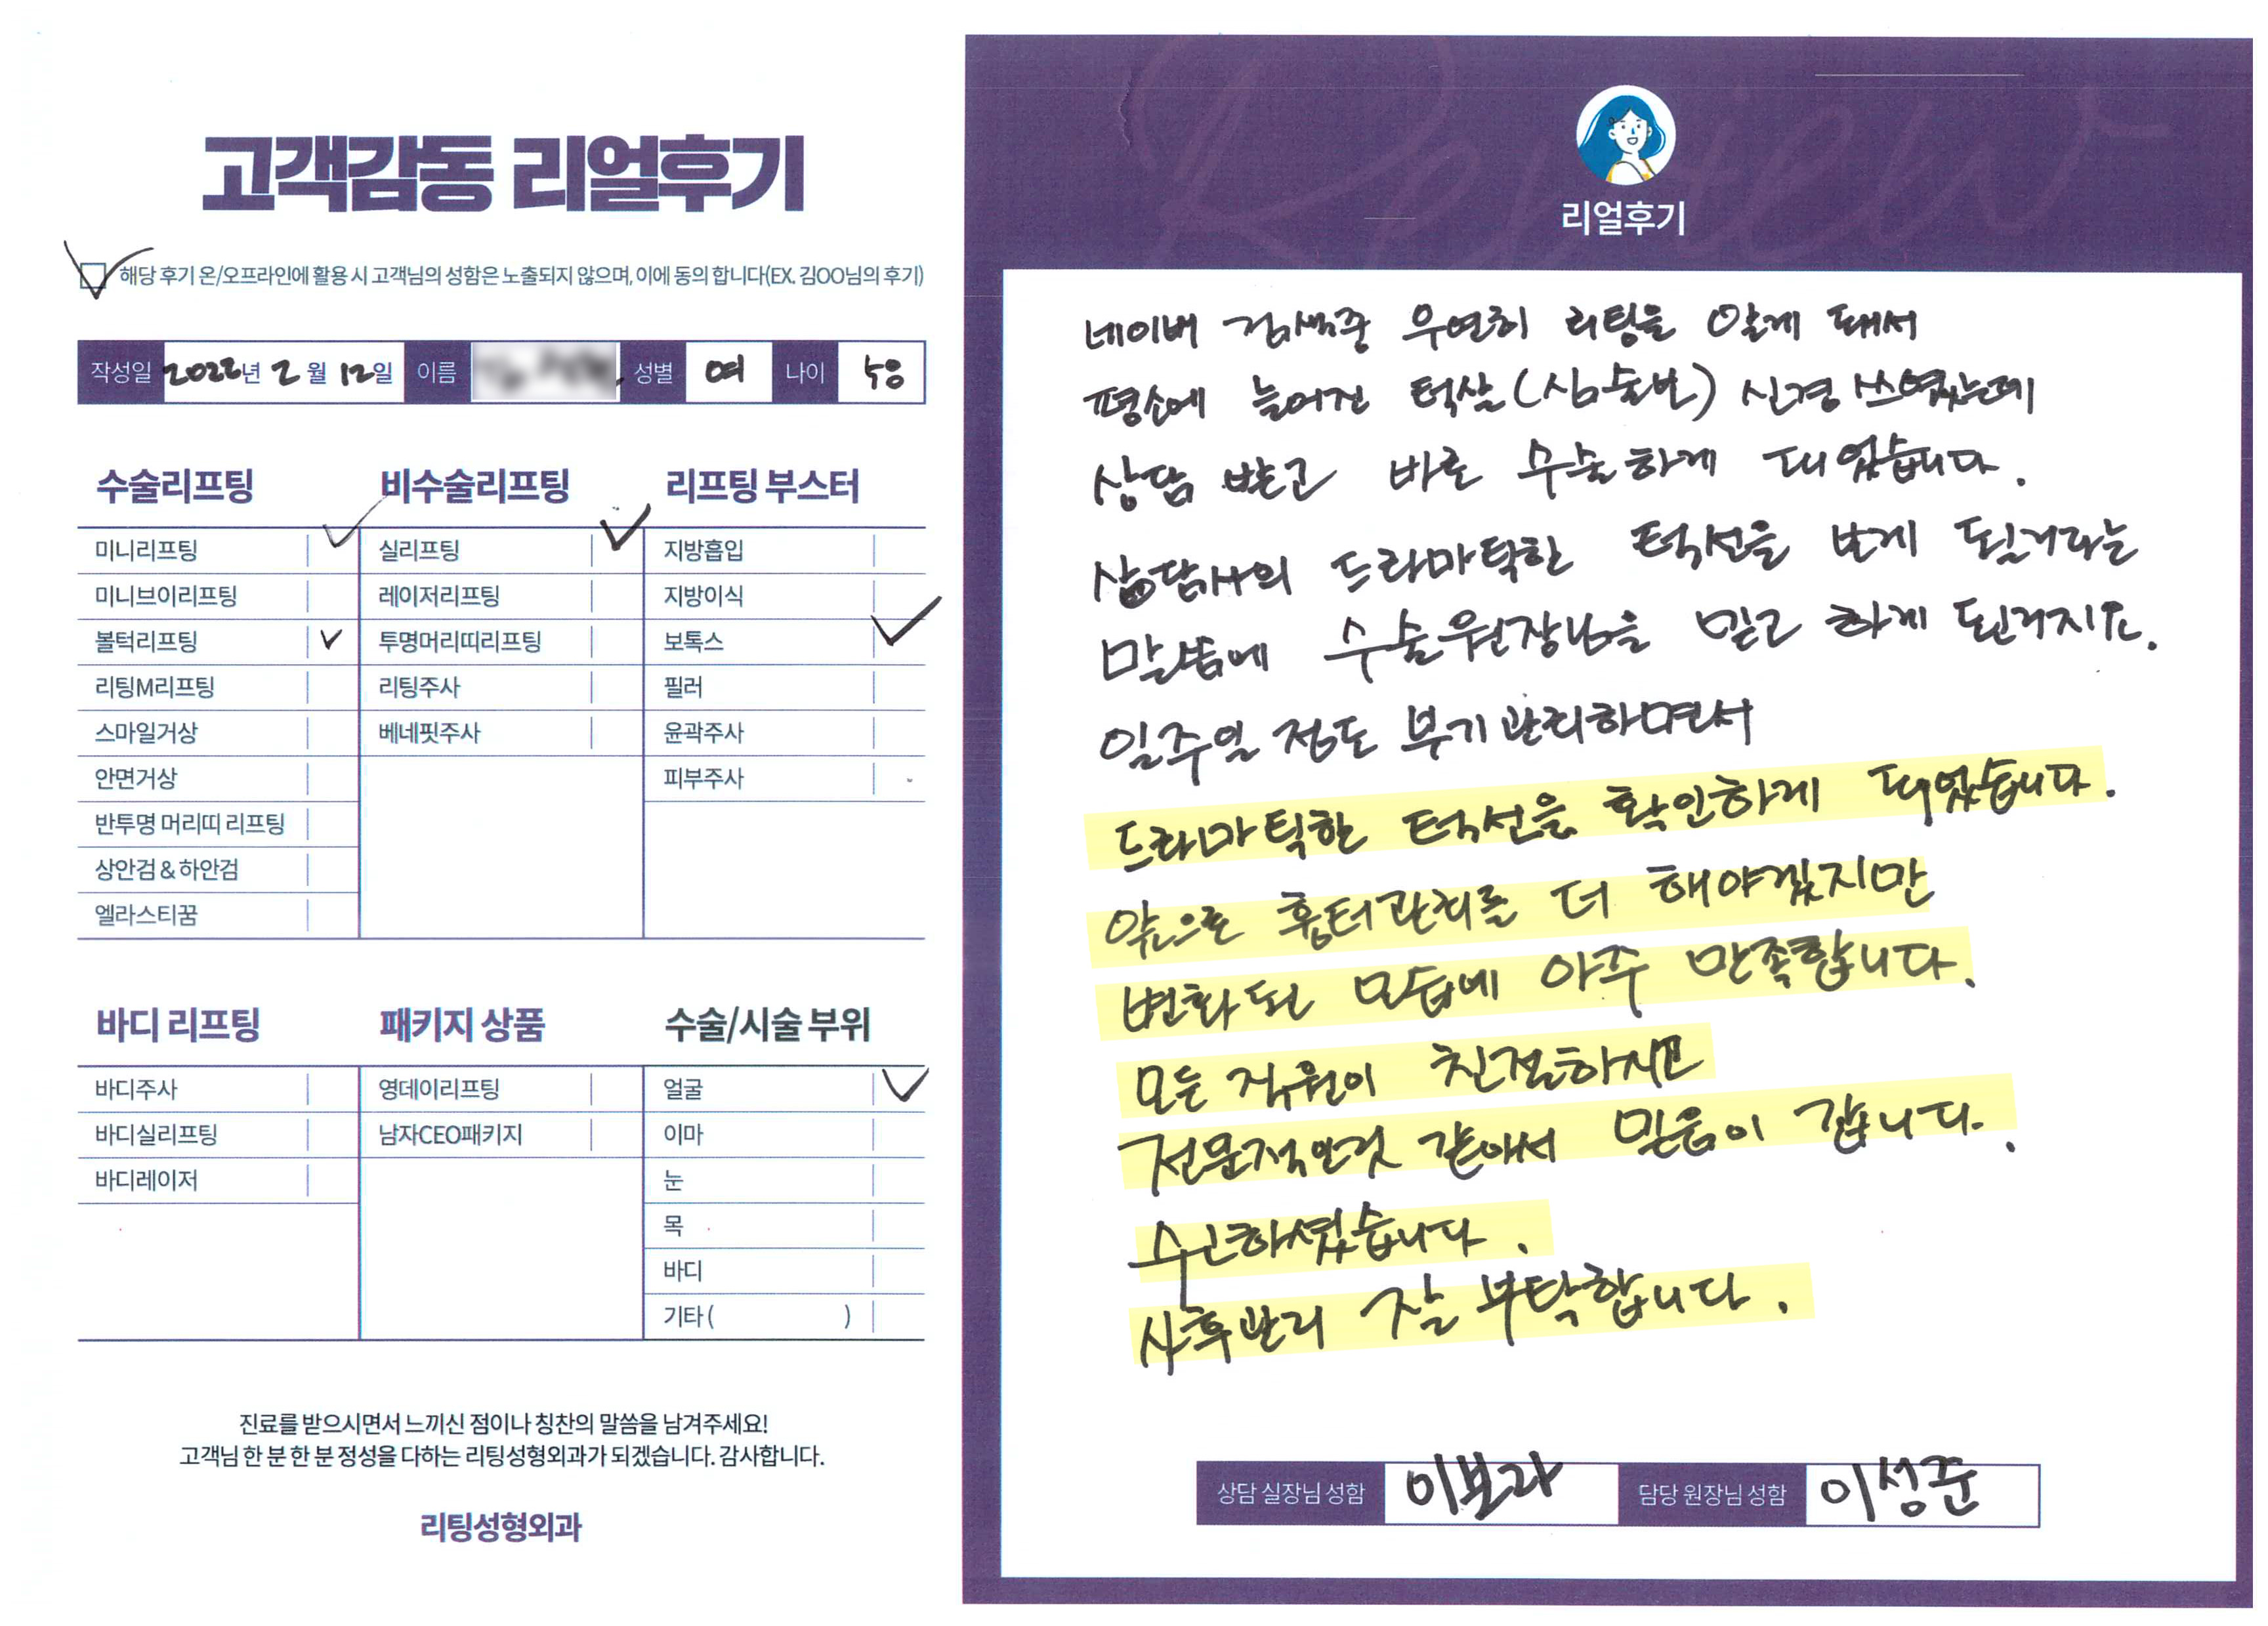 고객감동 리얼후기
해당 후기 온/오프라인에 활용 시 고객님의 성함은 노출되지 않으며, 이에 동의 합니다(EX. 김OO님의 후기)
작성일 2022년 2월 12일 이름 성별 여 나이 58
수술리프팅
미니리프팅
미니브이리프팅
볼턱리프팅
리팅M리프팅
스마일거상
안면거상
반투명 머리띠 리프팅
상안검 & 하안검
엘라스티꿈
비수술리프팅
실리프팅
레이저리프팅
투명머리띠리프팅
리팅주사
베네핏주사
리프팅 부스터
지방흡입
지방이식
보톡스
필러
윤곽주사
피부주사
바디 리프팅
바디주사
바디실리프팅
바디레이저
패키지 상품
영데이리프팅
남자CEO패키지
수술/시술 부위
얼굴
이마
눈
목
바디
기타 ( )
진료를 받으시면서 느끼신 점이나 칭찬의 말씀을 남겨주세요!
고객님 한 분 한 분 정성을 다하는 리팅성형외과가 되겠습니다. 감사합니다.
리팅성형외과
Review
리얼후기
네이버 검색중 우연히 리팅을 알게 돼서
평소에 늘어진 턱살(심술보) 신경 쓰였는데
상담 받고 바로 수술하게 되었습니다.
상담사의 드라마틱한 턱선을 보게 될거라는
말씀에 수술원장님을 믿고 하게 된거지요.
일주일 정도 부기관리하면서
드라마틱한 턱선을 확인하게 되었습니다.
앞으로 흉터관리를 더 해야겠지만
변화된 모습에 아주 만족합니다.
모든 직원이 친절하시고
전문적인것 같아서 믿음이 갑니다.
수고하셨습니다.
사후관리 잘 부탁합니다.
상담 실장님 성함 이보라 담당 원장님 성함 이성준